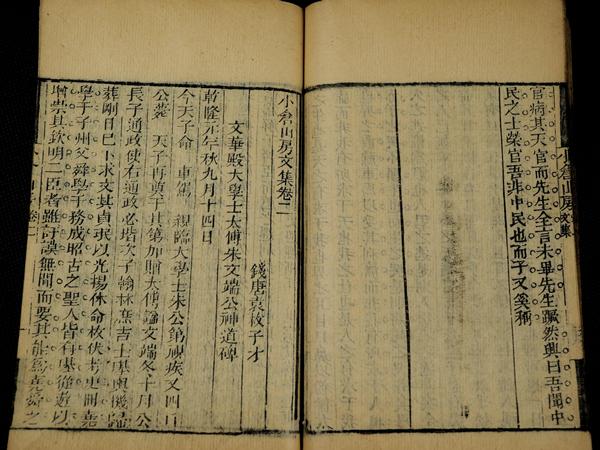 小倉山房文集
官病其天官而先生全言未畢先生蹶然興曰吾聞中
民之士榮官吾非中民也而子又奚稱
小倉山房文集卷二
錢唐袁枚子才
文華殿大學士太傅朱文端公神道碑
乾隆元年秋九月十四日
今天子命 車駕 親臨大學士朱公第視疾又四日
公薨 天子再奠于其第加贈太傅諡文端冬十月公
長子通政使右通政必堦次子翰林庶吉士基輿櫬歸
葬剛日已卜求文其貞珉以光揚休命枚伏考史冊堯
學于子州父舜學于務成昭古之聖人皆有甚從遊以
增崇其欽明二臣者雖訏謨無聞而要其能爲堯舜之